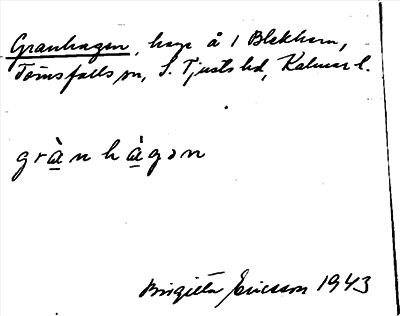 Granhagen, hage å 1 Blekhem,
Törnsfalls sn, S. Tjusts hd, Kalmar l.
grànhàgən
Birgitta Ericsson 1943